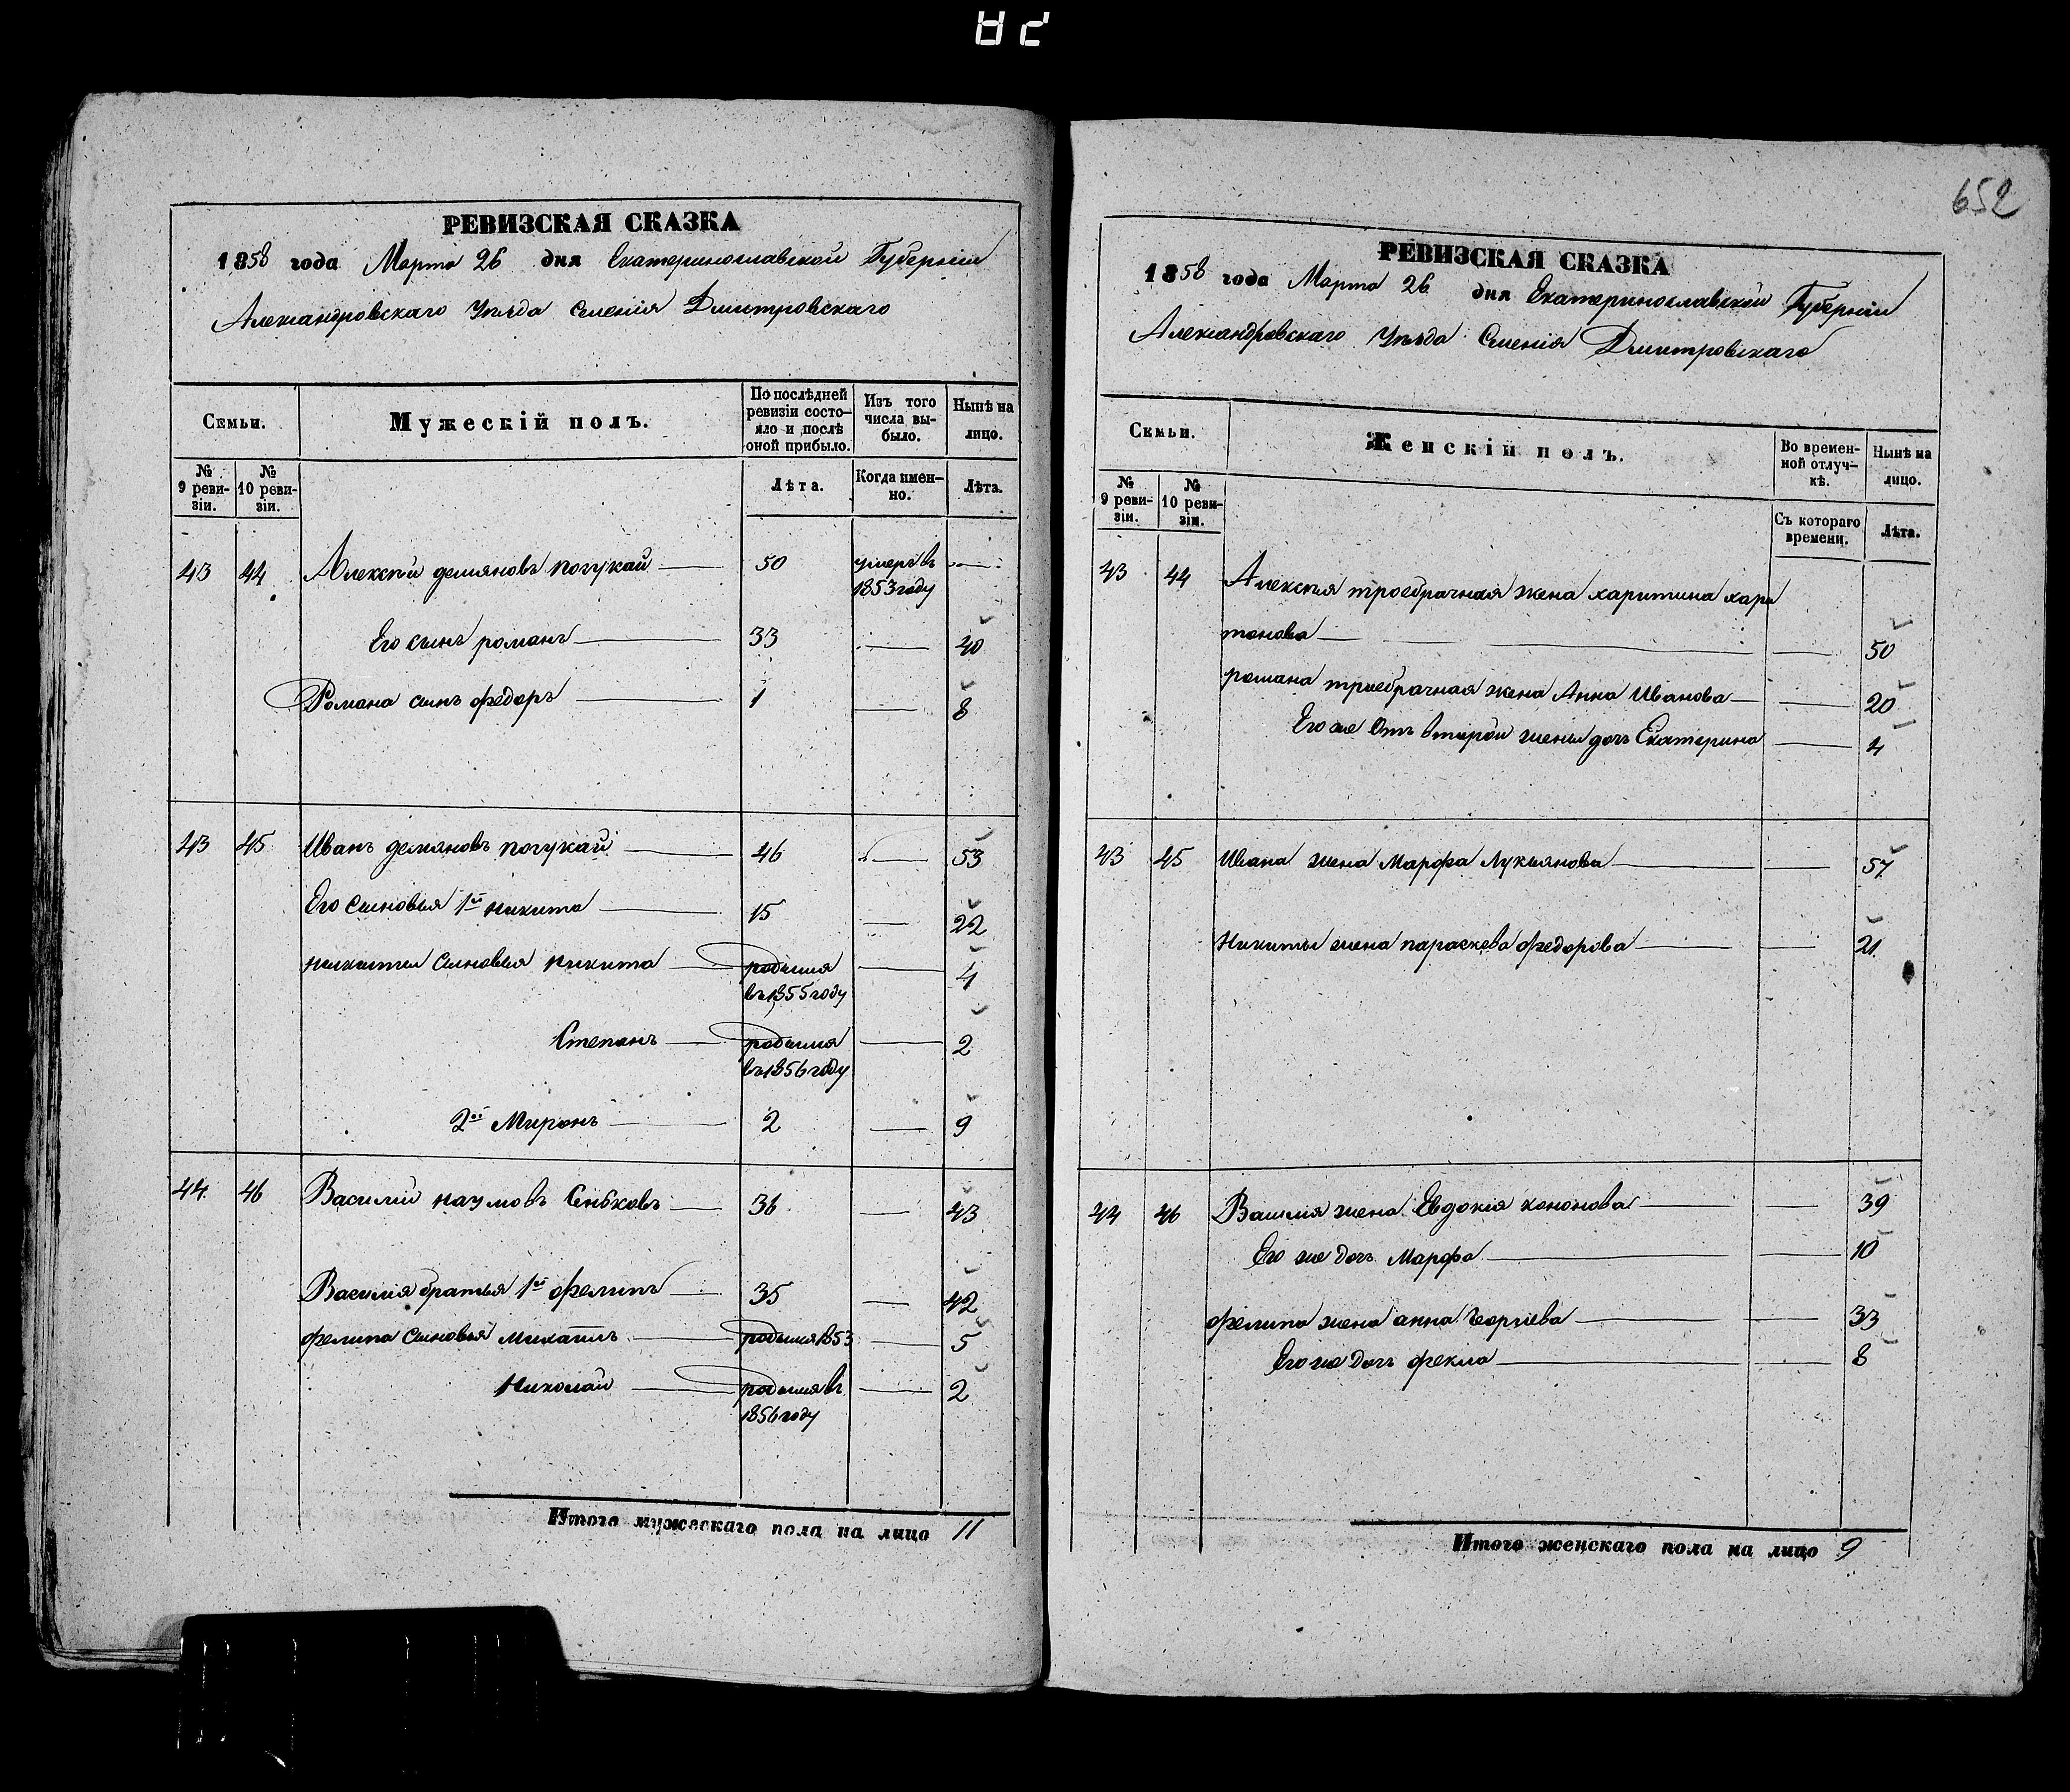 82
РЕВИЗСКАЯ СКАЗКА
1858 года Марта 26 дня Екатеринославской Губерніи
Александровскаго Уѣзда Селенія Дмитровскаго
Семьи.
Мужескій полъ.
По послѣдней ревизіи состо-
яло и послѣ оной прибыло.
Изъ того числа вы-
было.
Нынѣ на лицо.
№ 9 реви-
зіи.
№ 10 реви-
зіи.
Лѣта.
Когда имен-
но.
Лѣта.
43 44 Алексѣй демяновъ погукай 50 умеръ в 1853 году —
Его сынъ романъ 33 — 40
Романа сынъ федоръ 1 — 8
43 45 Иванъ демяновъ погукай 46 — 53
Его сыновья 1й никита 15 — 22
никиты сыновья никита родился въ 1855 году — 4
Степанъ родился въ 1856 году — 2
2й Миронъ 2 — 9
44 46 Василий наумовъ 36 — 43
Василия братья 1й фелипъ 35 — 42
фелипа сыновья михаилъ родился 1853 — 5
Николай родился въ 1856 году — 2
Итого мужескаго пола на лицо 11
652
РЕВИЗСКАЯ СКАЗКА
1858 года Марта 26 дня Екатеринославской Губерніи
Александровскаго Уѣзда Селенія Дмитровскаго
Семьи.
Женскій полъ.
Во времен-
ной отлуч-
кѣ.
Нынѣ на лицо.
№ 9 реви-
зіи.
№ 10 реви-
зіи.
Съ котораго времени.
Лѣта.
43 44 Алексѣя троебрачная жена харитина хари
тонова — 50
романа троебрачная жена Анна Иванова — 20
Его же Отъ второй жены дочь Екатерина — 4
43 45 Ивана жена Марфа Лукьянова — 57
Никиты жена параскева федорова — 21
44 46 Василия жена Евдокія кононова — 39
Его же дочь Марфа — 10
фелипа жена анна Георгиева — 33
Его же дочь фекла — 8
Итого женскаго пола на лицо 9